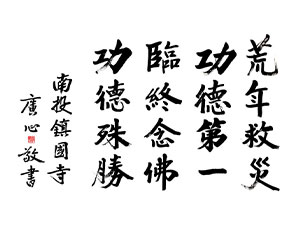 荒年救災
功德第一
臨終念佛
功德殊勝
南投鎮國寺
廣心敬書